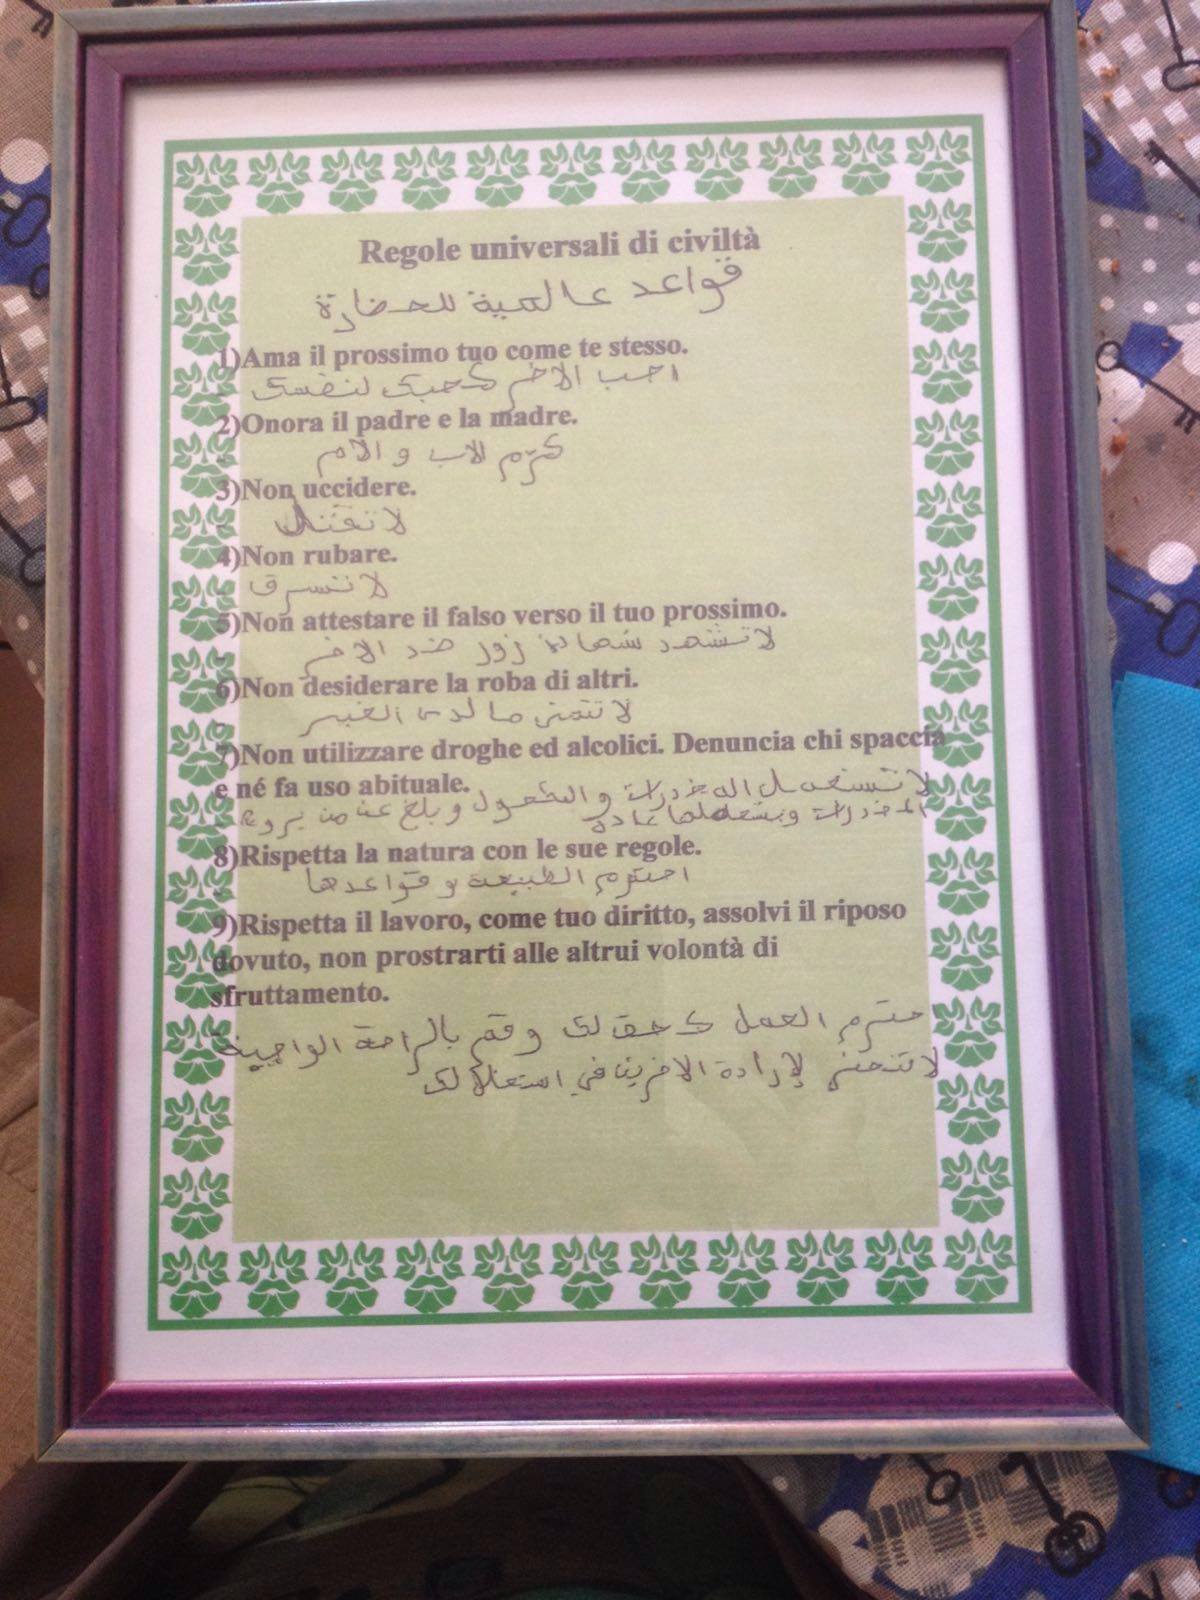 Regole universali di civiltà
قواعد عالمية للحضارة
1)Ama il prossimo tuo come te stesso.
احب الاخر كحبك لنفسك
2)Onora il padre e la madre.
كرّم الاب و الام
3)Non uccidere.
لا تقتل
4)Non rubare.
لا تسرق
5)Non attestare il falso verso il tuo prossimo.
لا تشهد شهادة زور ضد الاخر
6)Non desiderare la roba di altri.
لا تتمنى ما لدى الغير
7)Non utilizzare droghe ed alcolici. Denuncia chi spaccia
e né fa uso abituale.
لا تستعمل المخدرات و الكحول و بلغ عن من يروج
المخدرات ويستعملها عادة
8)Rispetta la natura con le sue regole.
احترم الطبيعة و قواعدها
9)Rispetta il lavoro, come tuo diritto, assolvi il riposo
dovuto, non prostrarti alle altrui volontà di
sfruttamento.
حترم العمل كحق لك وقم بالراحة الواجبة
لا تنحني لإرادة الاخرين في استغلالك